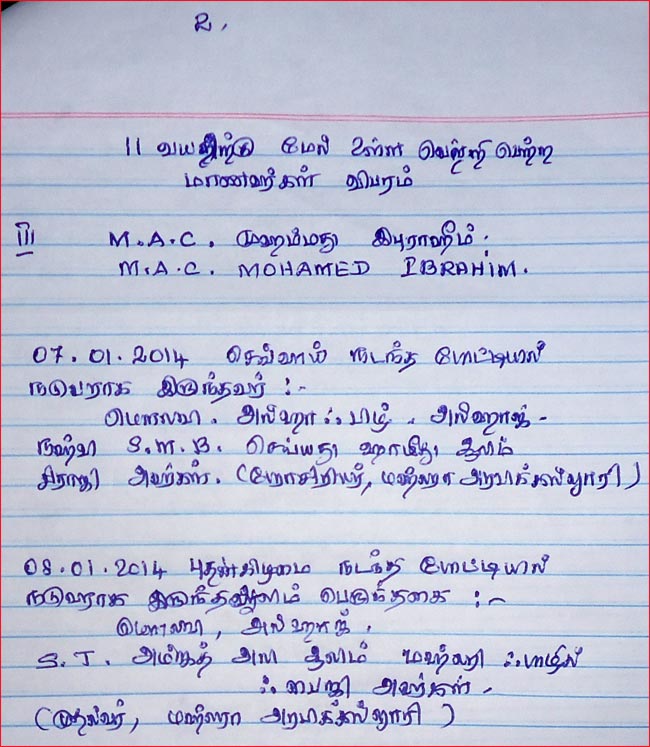 2.
11 வயதிற்கு மேல் உள்ள வெற்றி பெற்ற
மாணவர்கள் விபரம்
III M.A.C. முஹம்மது இபுராஹீம்.
M.A.C. MOHAMED IBRAHIM.
07.01.2014 செவ்வாய் நடந்த போட்டியில்
நடுவராக இருந்தவர் :-
மௌலவி. அல்ஹாஃபிழ். அல்ஹாஜ்.
நஹ்வி S.M.B. செய்யது ஹாமிது ஆலிம்
சிராஜி அவர்கள். (பேராசிரியர், மஹ்லரா அரபிக்கல்லூரி)
08.01.2014 புதன்கிழமை நடந்த போட்டியில்
நடுவராக இருந்த பெருந்தகை :-
மௌலவி, அல்ஹாஜ்.
S.T. அமீர் அலி ஆலிம் மஹ்லரி ஃபாழில்
ஃபைஜி அவர்கள்.
(முதல்வர், மஹ்லரா அரபிக்கல்லூரி)